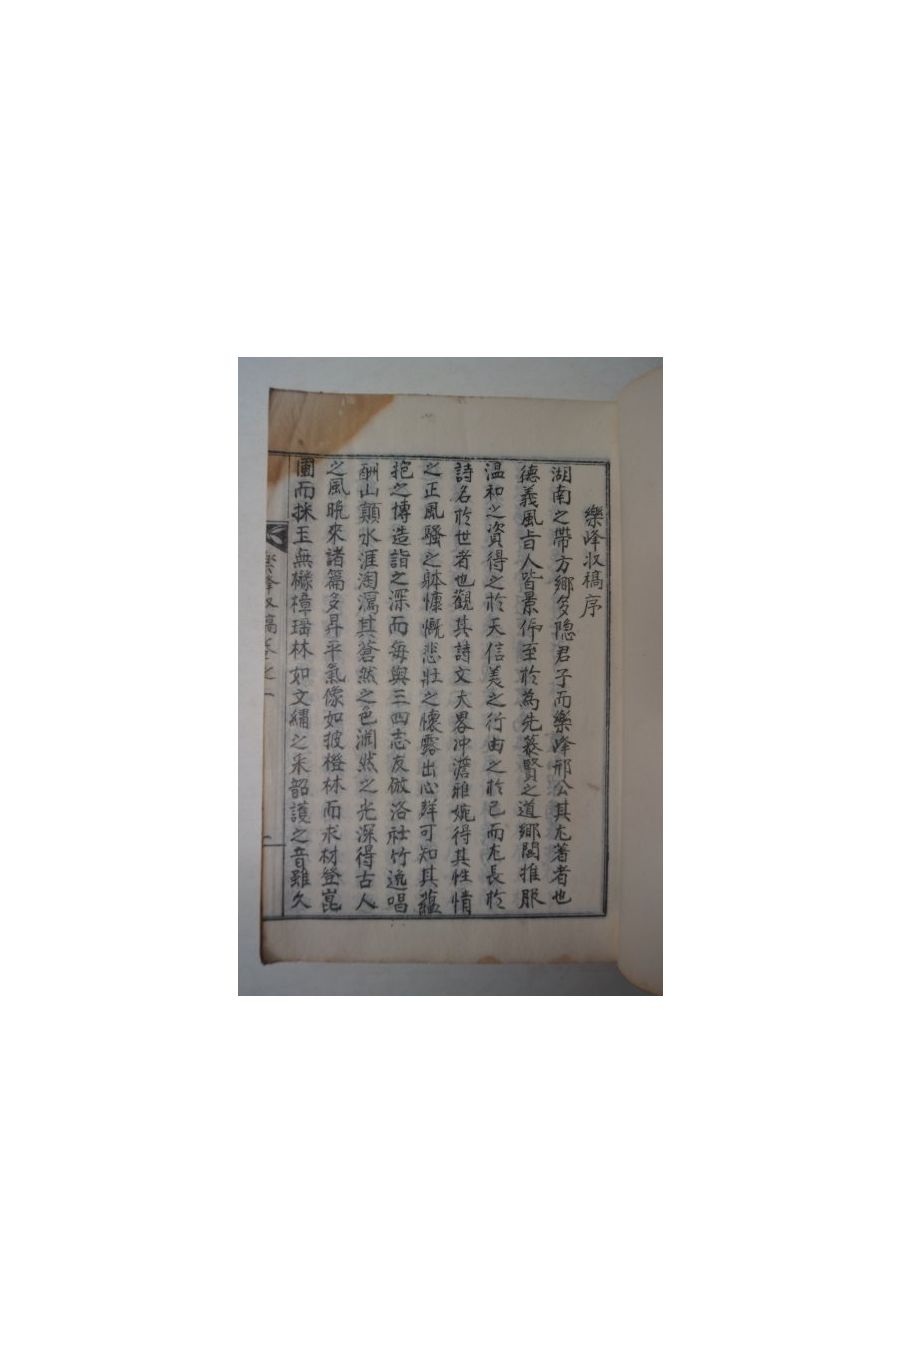 樂峰收稿序
湖南之帶方鄉多隐君子而樂峰邢公其尤著者也
德義風旨人皆景仰至於為先裒賢之道鄉閭推服
溫和之資得之於天信美之行由之於己而尤長於
詩名於世者也觀其詩文大畧冲澹雅婉得其性情
之正風騷之躰慷慨悲壯之懷露出心鲜可知其蘊
抱之博造詣之深而每與三四志友倣洛社竹逸唱
酬山巔水涯淘瀉其蒼然之色澗然之光深得古人
之風晩來諸篇多昇平氣像如披橙林而求材登崑
圃而採玉無櫾樟瑶林如文繡之采韶護之音雖久
樂峰收稿卷之一